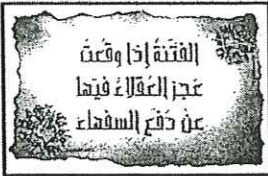 الفتنة إذا وقعت
عجز العقلاء فيها
عن دفع السفهاء